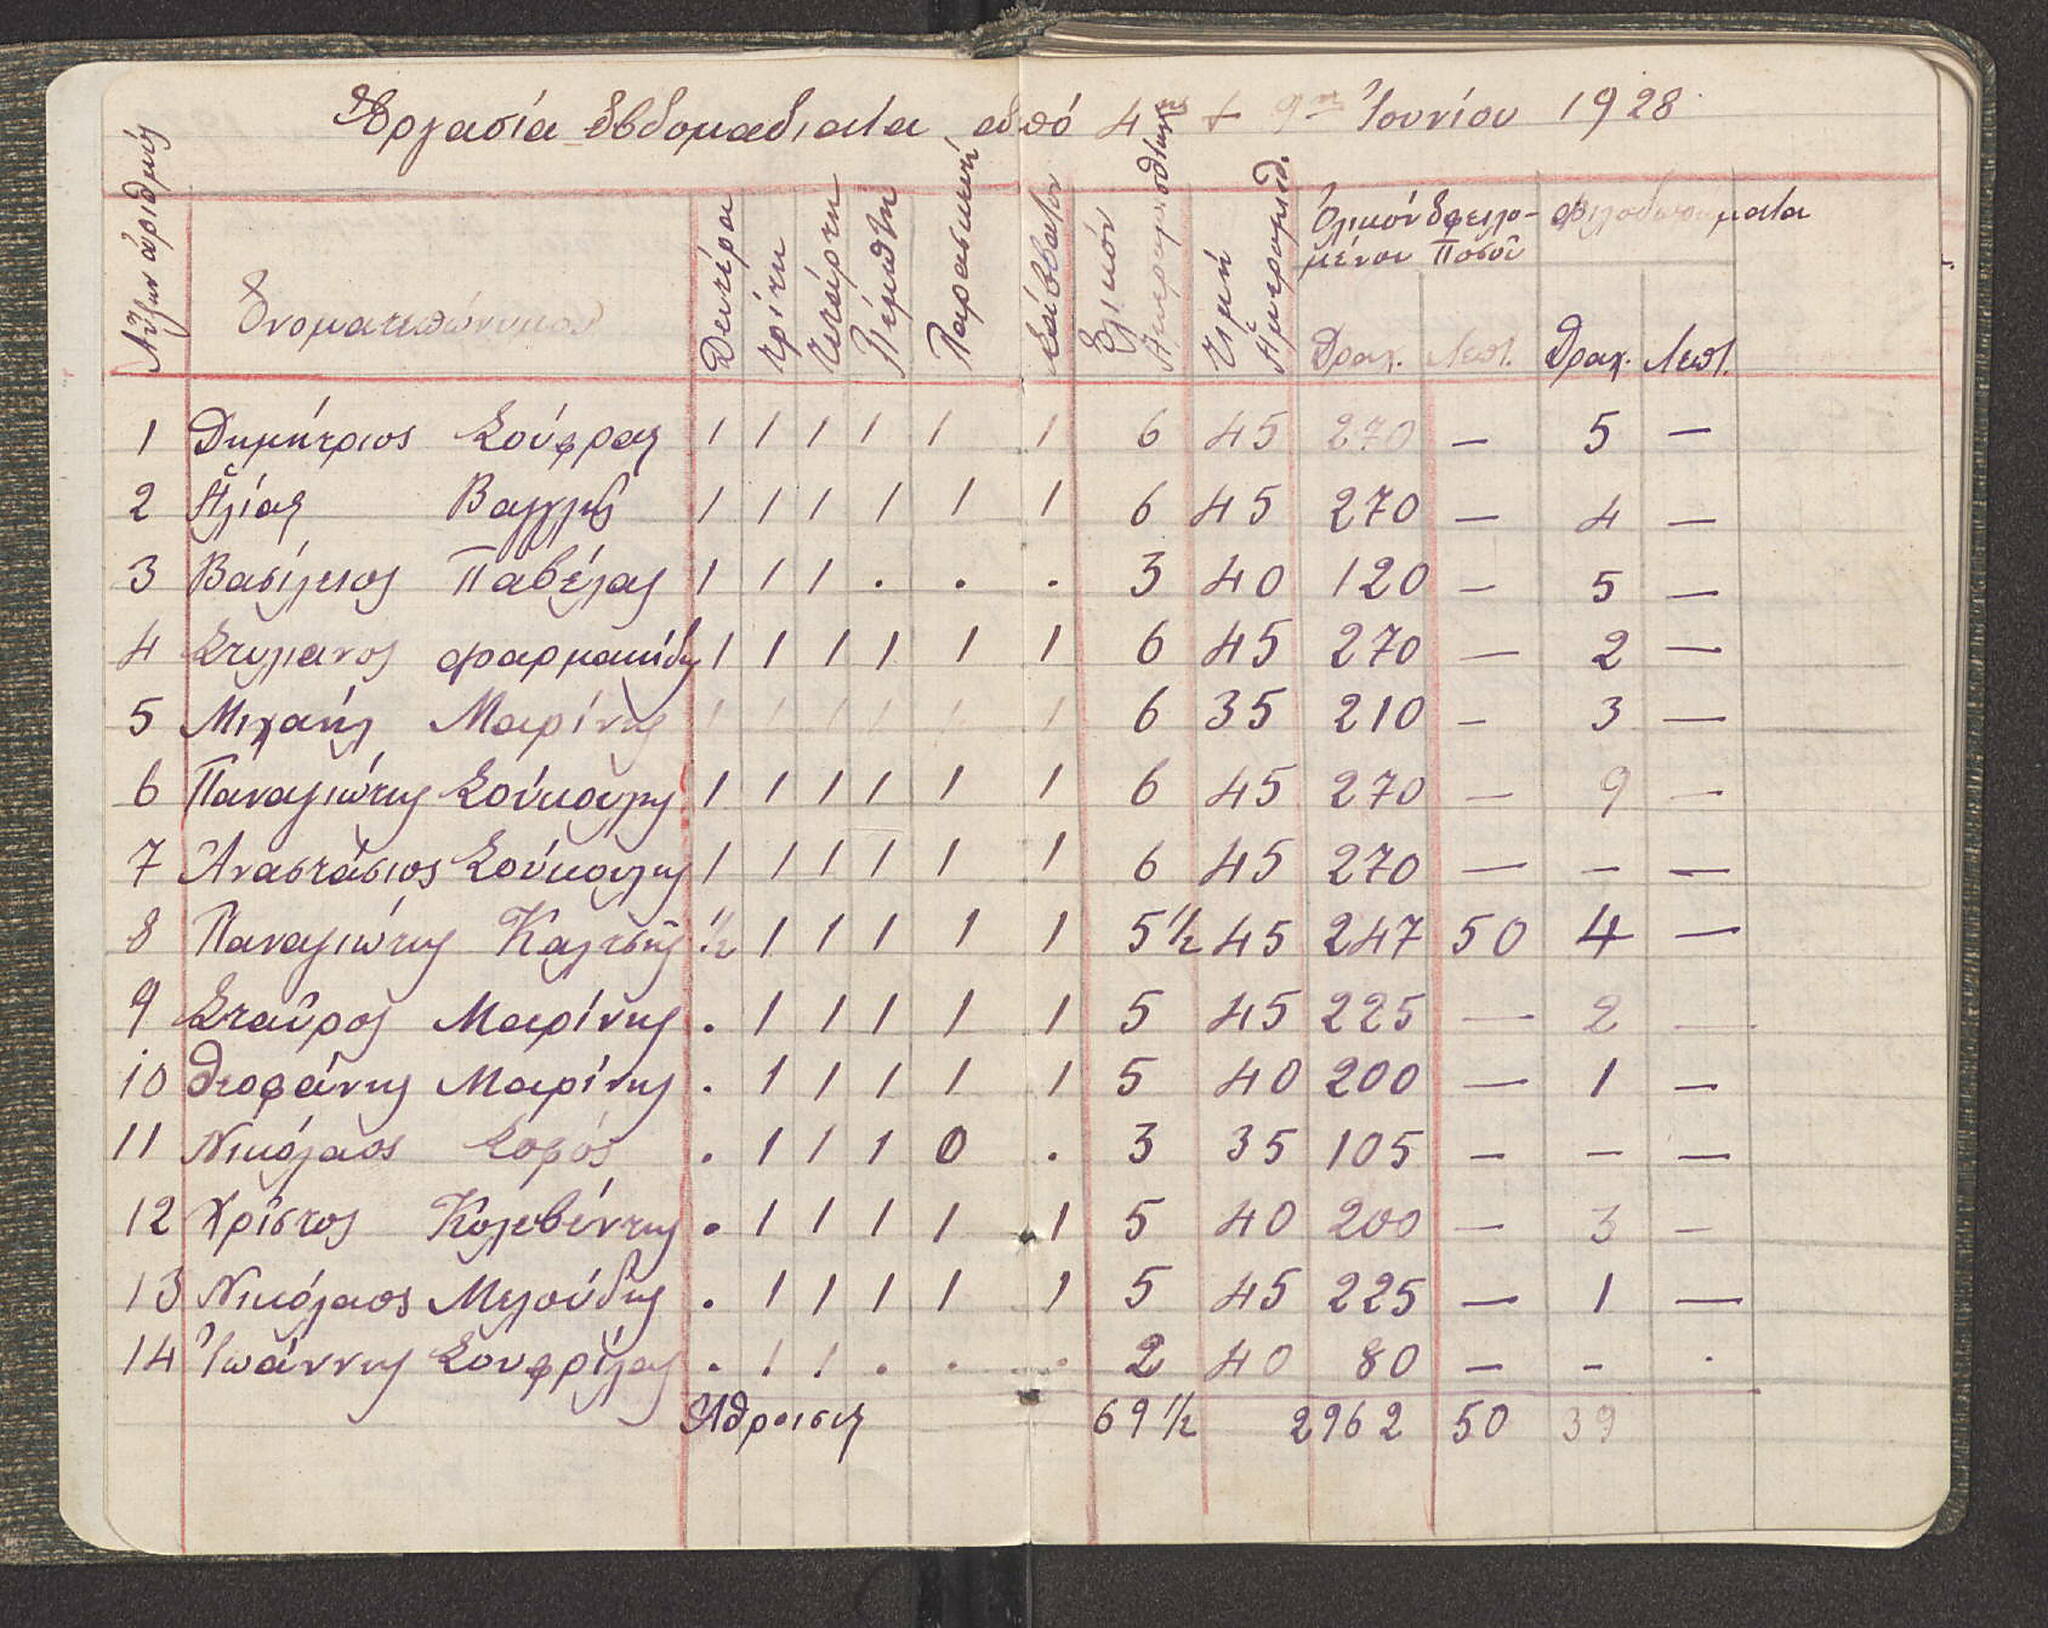 Ἐργασία ἑβδομαδιαία ἀπό 4ης + 9ης Ἰουνίου 1928
Αὔξων ἀριθμός Ὀνοματεπώνυμον Δευτέρα Τρίτη Τετάρτη Πέμπτη Παρασκευή Σάββατον Ὁλικόν Τιμή Ἡμερομισθ. Ὁλικόν Ὀφειλο- Φιλοδωρήματα
μένου Ποσοῦ
Δραχ. Λεπτ. Δραχ. Λεπτ.
1 Δημήτριος Σούφρας 1 1 1 1 1 1 6 45 270 — 5 —
2 Ἠλίας Βαγγλῆς 1 1 1 1 1 1 6 45 270 — 4 —
3 Βασίλειος Παβέλας 1 1 1 . . . 3 40 120 — 5 —
4 Στυλιανος Φαρμακίδης 1 1 1 1 1 1 6 45 270 — 2 —
5 Μιχαήλ Μαρίνης 1 1 1 1 1 1 6 35 210 — 3 —
6 Παναγιώτης Σούκουλης 1 1 1 1 1 1 6 45 270 — 9 —
7 Ἀναστάσιος Σούκουλης 1 1 1 1 1 1 6 45 270 — — —
8 Παναγιώτης Καλτσῆς ½ 1 1 1 1 1 5½ 45 247 50 4 —
9 Σταῦρος Μαρίνης . 1 1 1 1 1 5 45 225 — 2 —
10 Θεοφάνης Μαρίνης . 1 1 1 1 1 5 40 200 — 1 —
11 Νικόλαος Σοφός . 1 1 1 0 . 3 35 105 — — —
12 Χρῖστος Κολοβέντης . 1 1 1 1 1 5 40 200 — 3 —
13 Νικόλαος Μελούδης . 1 1 1 1 1 5 45 225 — 1 —
14 Ἰωάννης Σουφρίλας . 1 1 . . . 2 40 80 — - .
Ἄθροισις 69½ 2962 50 39